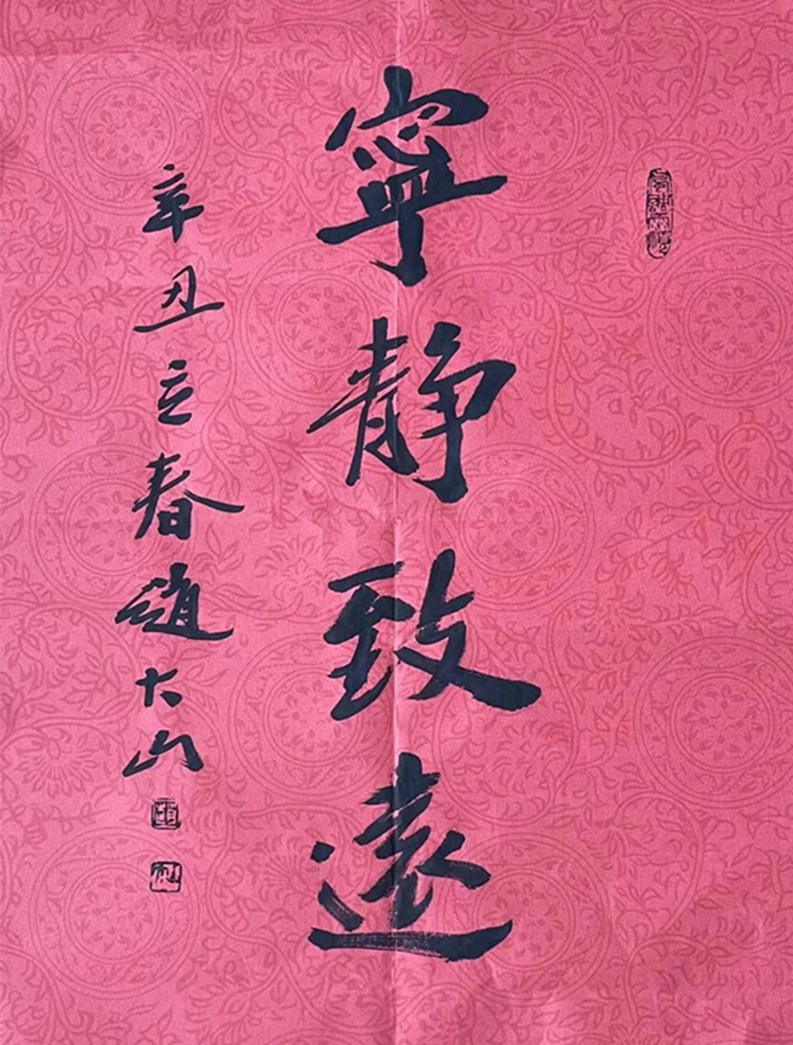 寧靜致遠
辛丑立春趙大山